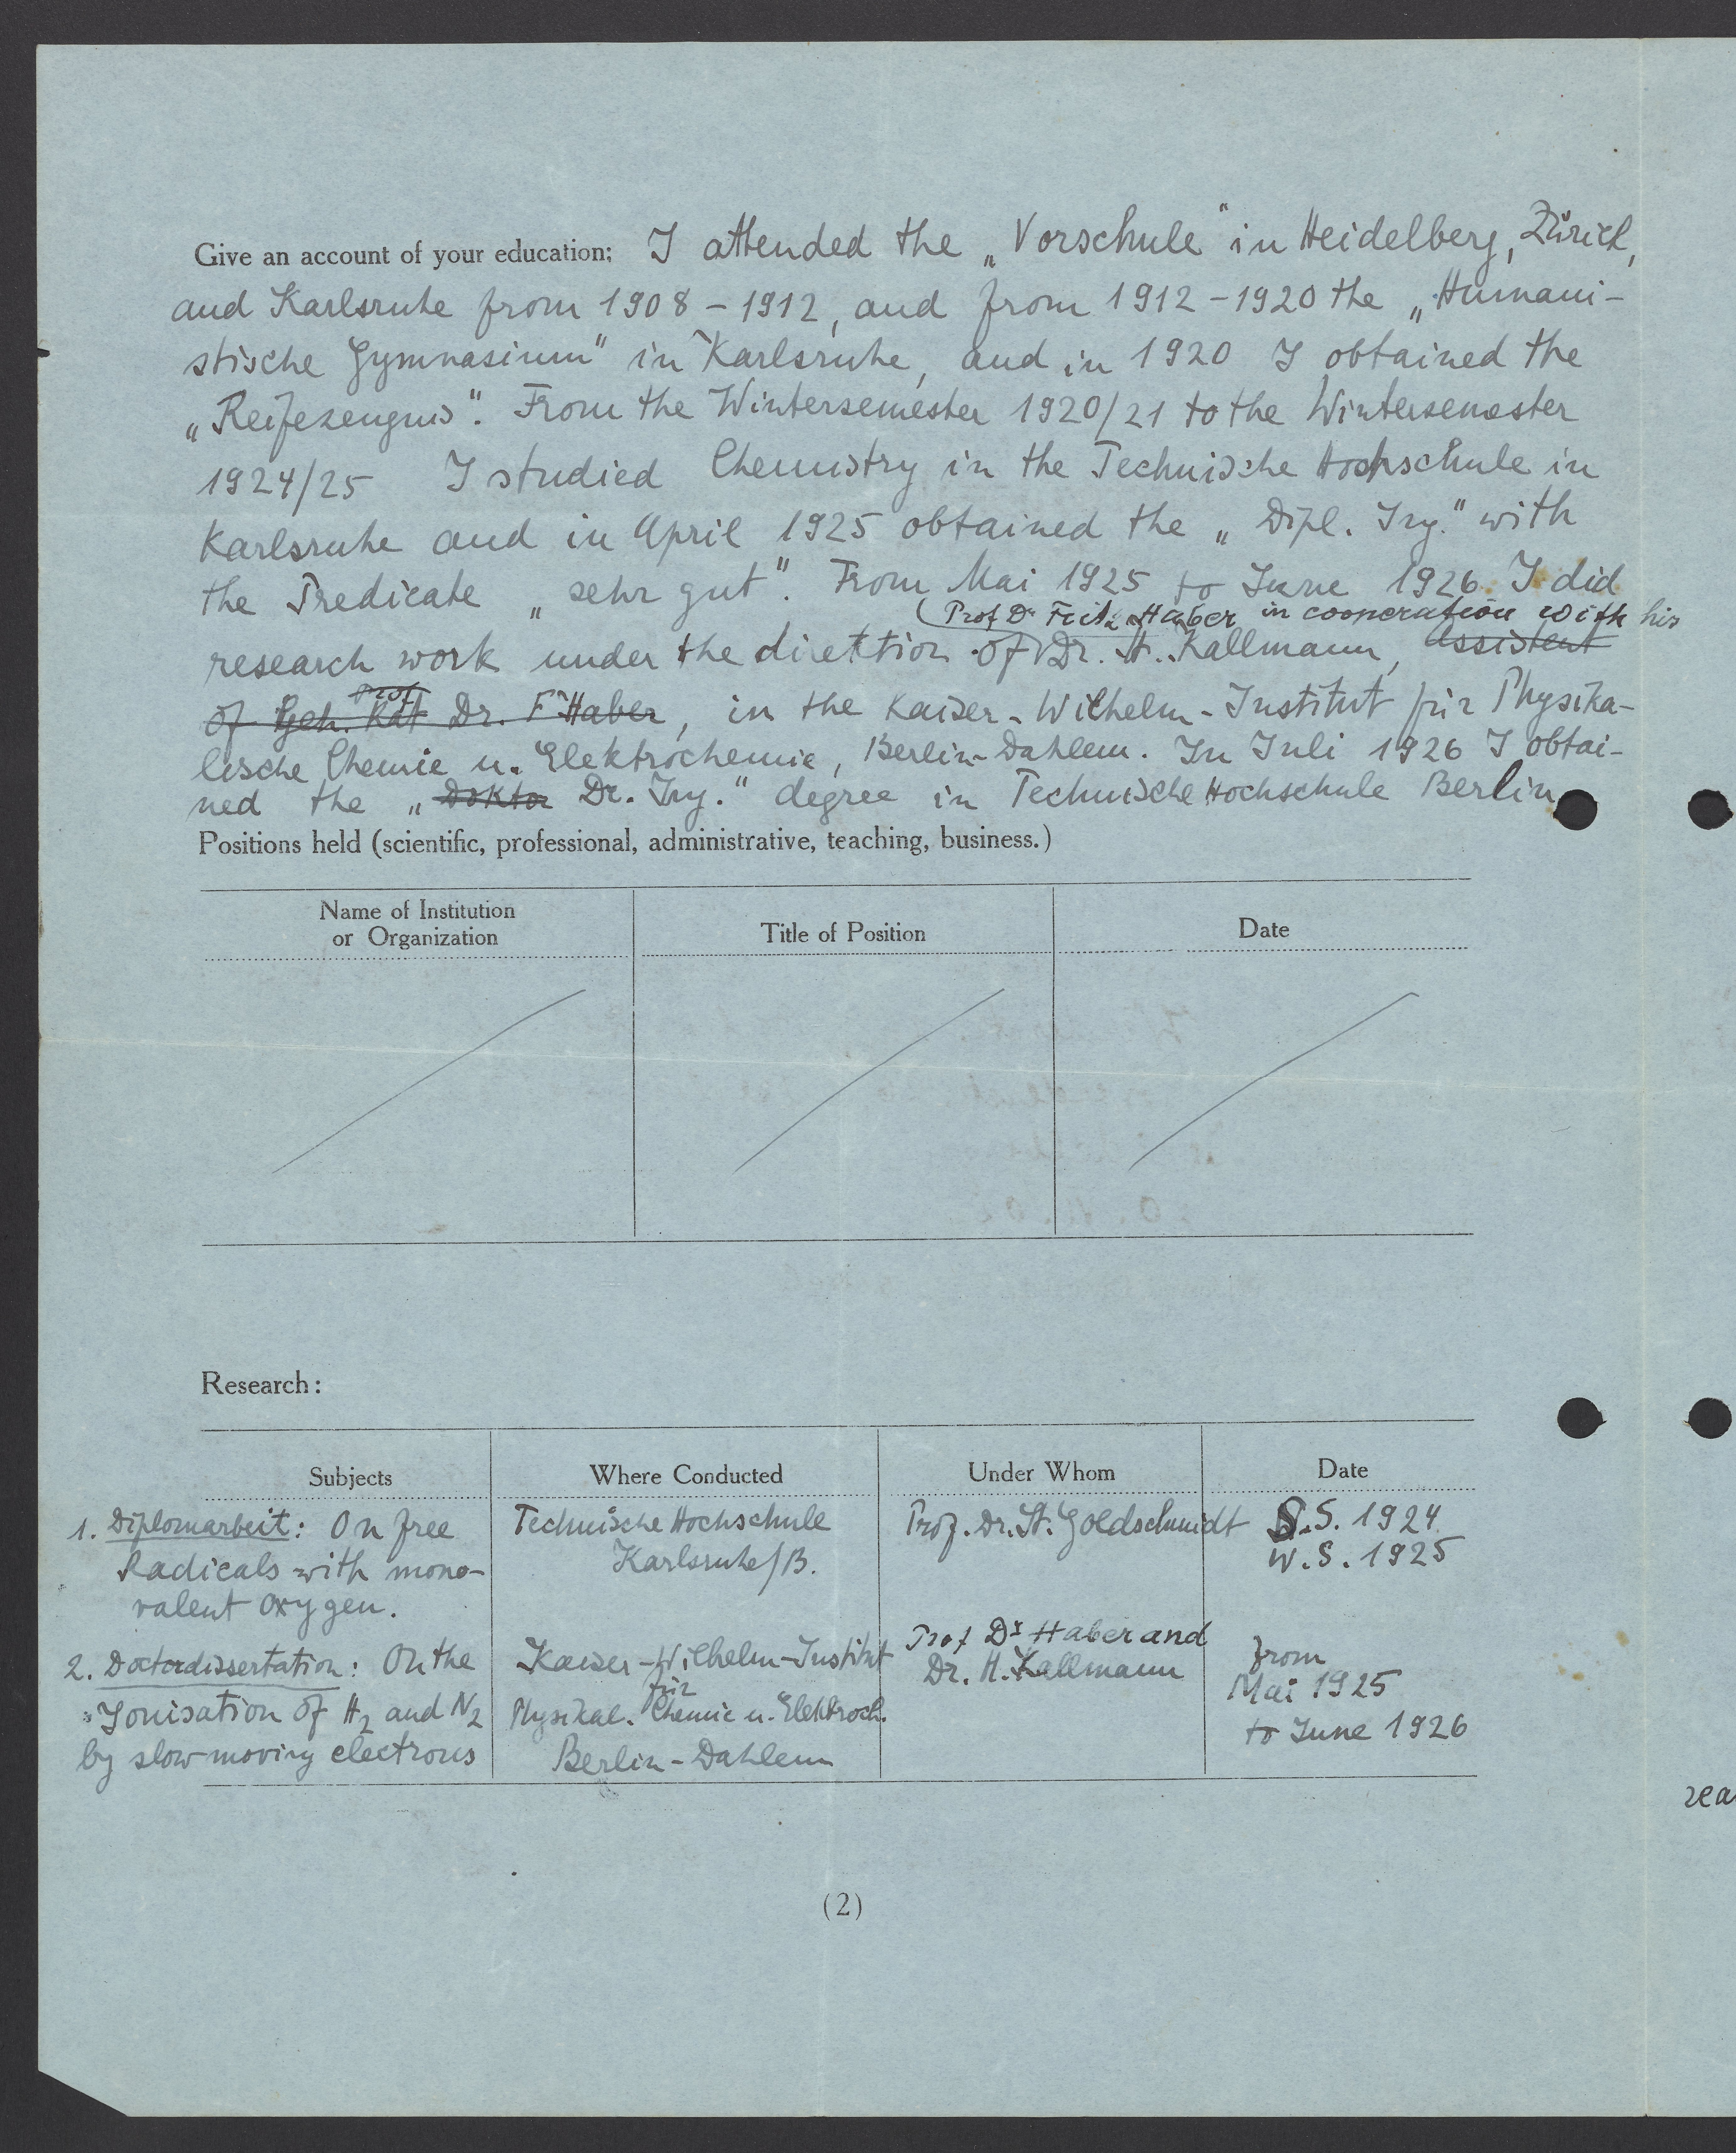 Give an account of your education; I attended the „Vorschule" in Heidelberg, Zürich,
and Karlsruhe from 1908 - 1912, and from 1912 - 1920 the „Humani-
stische Gymnasium" in Karlsruhe, and in 1920 I obtained the
„Reifezeugnis". From the Wintersemester 1920/21 to the Wintersemester
1924/25 I studied Chemistry in the Technische Hochschule in
Karlsruhe and in April 1925 obtained the „Dipl. Ing." with
the Predicate „sehr gut". From Mai 1925 to June 1926 I did
(Prof Dr Fritz Haber in cooperation with his
research work under the direktion of Dr. H. Kallmann, Assistent
Prof
of Geh. Rat Dr. F Haber, in the Kaiser-Wilhelm-Institut für Physika-
lische Chemie u. Elektrochemie, Berlin-Dahlem. In Juli 1926 I obtai-
ned the „Doktor Dr. Ing." degree in Technische Hochschule Berlin
Positions held (scientific, professional, administrative, teaching, business.)
Name of Institution
or Organization
Title of Position
Date
Research:
Subjects
Where Conducted
Under Whom
Date
1. Diplomarbeit: On free
Radicals with mono-
valent oxygen.
Technische Hochschule
Karlsruhe/B.
Prof. Dr. St. Goldschmidt
S.S. 1924
W.S. 1925
2. Doctordissertation: On the
Ionisation of H2 and N2
by slow-moving electrons
Kaiser-Wilhelm-Institut
für
Physikal. Chemie u. Elektroch.
Berlin-Dahlem
Prof Dr Haber and
Dr. H. Kallmann
from
Mai 1925
to June 1926
(2)